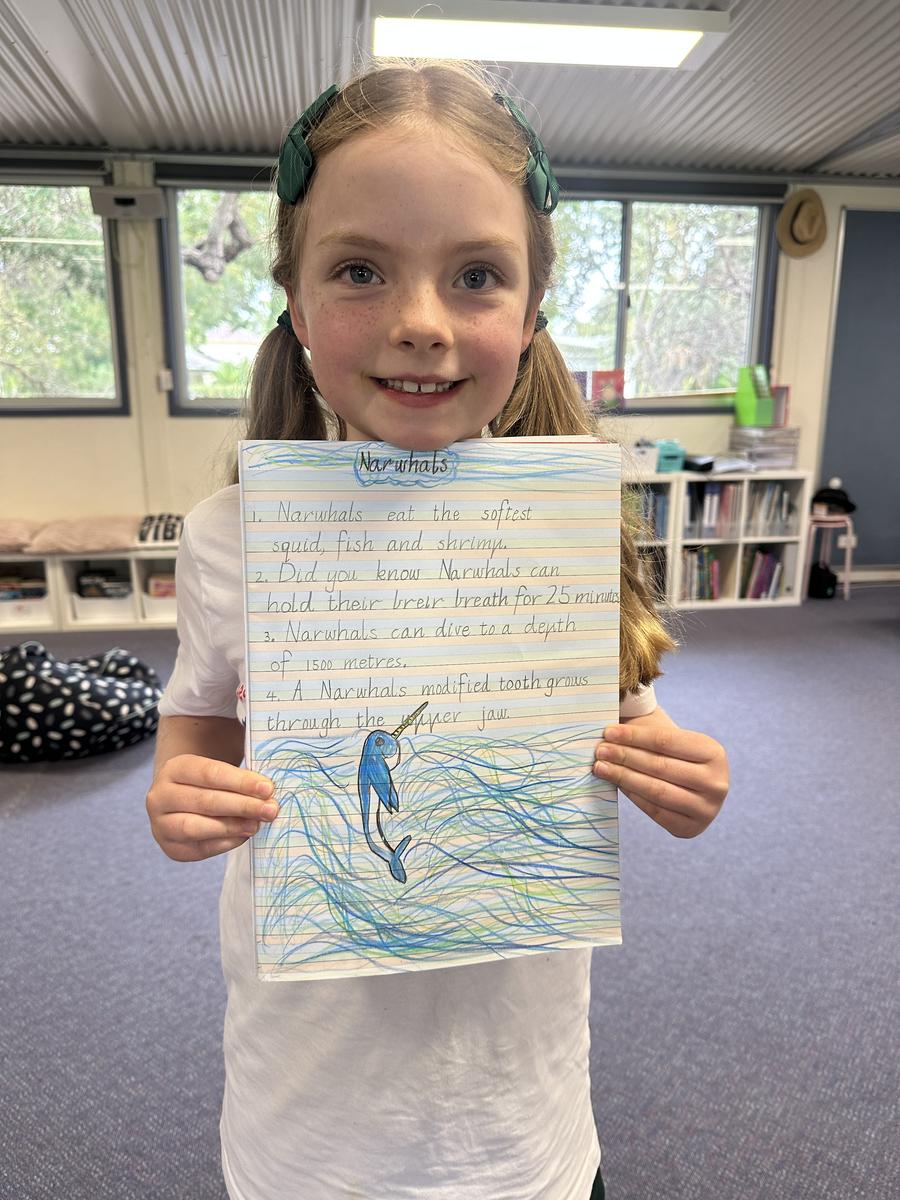 Narwhals
1. Narwhals eat the softest
squid, fish and shrimp.
2. Did you know Narwhals can
hold their breir breath for 25 minutes
3. Narwhals can dive to a depth
of 1500 metres.
4. A Narwhals modified tooth grows
through the upper jaw.